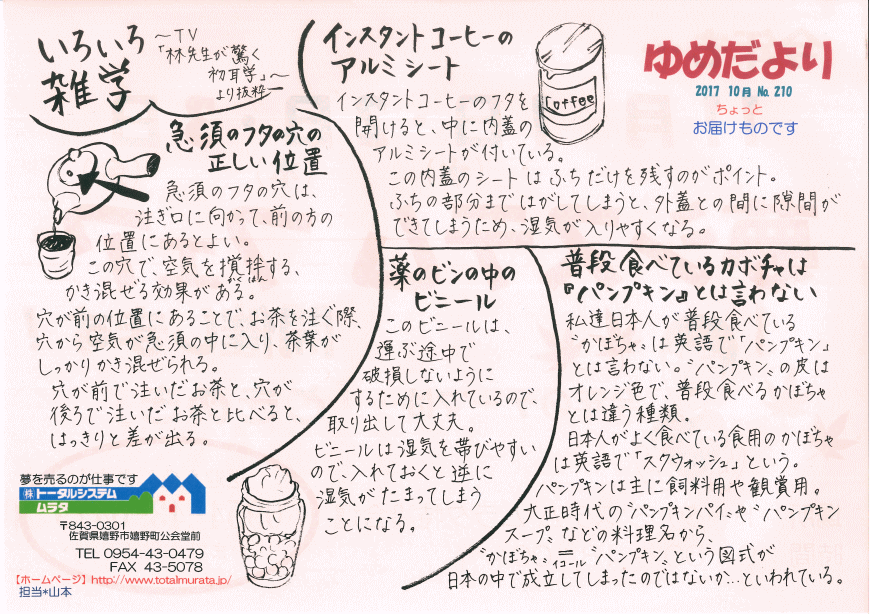 いろいろ
雑学
～TV
「林先生が驚く
初耳学」～
より抜粋
ゆめだより
2017 10月 No.210
ちょっと
お届けものです
インスタントコーヒーの
アルミシート
インスタントコーヒーのフタを
開けると、中に内蓋の
アルミシートが付いている。
この内蓋のシートはふちだけを残すのがポイント。
ふちの部分まではがしてしまうと、外蓋との間に隙間が
できてしまうため、湿気が入りやすくなる。
Coffee
急須のフタの穴の
正しい位置
急須のフタの穴は、
注ぎ口に向かって、前の方の
位置にあるとよい。
この穴で、空気を攪拌する、
かくはん
かき混ぜる効果がある。
穴が前の位置にあることで、お茶を注ぐ際、
穴から空気が急須の中に入り、茶葉が
しっかりかき混ぜられる。
穴が前で注いだお茶と、穴が
後ろで注いだお茶と比べると、
はっきりと差が出る。
薬のビンの中の
ビニール
このビニールは、
運ぶ途中で
破損しないように
するために入れているので、
取り出して大丈夫。
ビニールは湿気を帯びやすい
ので、入れておくと逆に
湿気がたまってしまう
ことになる。
普段食べているカボチャは
『パンプキン』とは言わない
私達日本人が普段食べている
〝かぼちゃ〟は英語で「パンプキン」
とは言わない。〝パンプキン〟の皮は
オレンジ色で、普段食べるかぼちゃ
とは違う種類。
日本人がよく食べている食用のかぼちゃ
は英語で「スクウォッシュ」という。
パンプキンは主に飼料用や観賞用。
大正時代の〝パンプキンパイ〟や〝パンプキン
スープ〟などの料理名から、
〝かぼちゃ〟=〝パンプキン〟という図式が
イコール
日本の中で成立してしまったのではないか…といわれている。
夢を売るのが仕事です
㈱トータルシステム
ムラタ
〒843-0301
佐賀県嬉野市嬉野町公会堂前
TEL 0954-43-0479
FAX 43-5078
【ホームページ】http://www.totalmurata.jp/
担当*山本